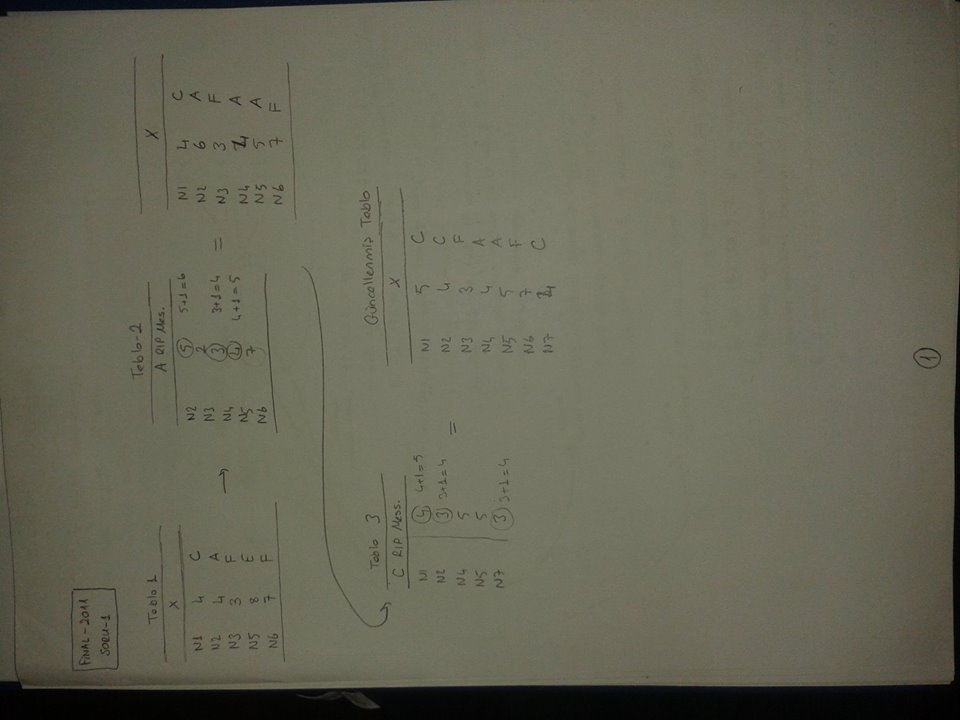 FINAL-2011
SORU-1
Tablo 1
X
N1 4 C
N2 4 A
N3 3 F
N5 8 E
N6 7 F
→
Tablo-2
A RIP Mes.
N2 5 5+1=6
N3 2
N4 3 3+1=4
N5 4 4+1=5
N6 7
=
X
N1 4 C
N2 6 A
N3 3 F
N4 4 A
N5 5 A
N6 7 F
Tablo 3
C RIP Mess.
N1 4 4+1=5
N2 3 3+1=4
N4 5
N5 5
N7 3 3+1=4
=
Güncellenmiş Tablo
X
N1 5 C
N2 4 C
N3 3 F
N4 4 A
N5 5 A
N6 7 F
N7 4 C
1